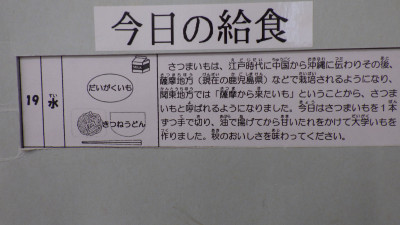 今日の給食
19
水
だいがくいも
きつねうどん
さつまいもは、江戸時代に中国から沖縄に伝わりその後、
薩摩地方（現在の鹿児島県）などで栽培されるようになり、
関東地方では「薩摩から来たいも」ということから、さつま
いもと呼ばれるようになりました。今日はさつまいもを１本
ずつ手で切り、油で揚げてから甘いたれをかけて大学いもを
作りました。秋のおいしさを味わってください。